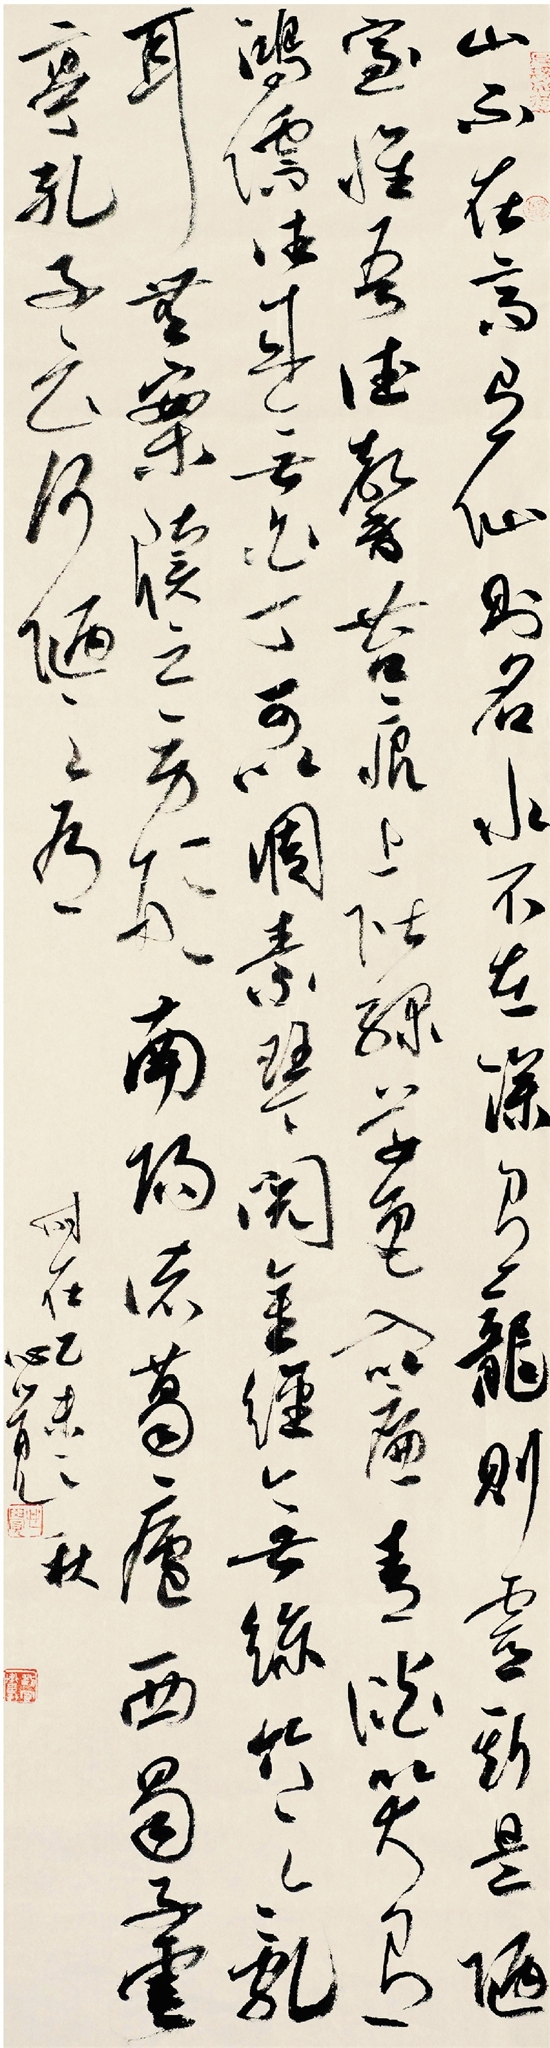 山不在高有仙則名水不在深有龍則靈斯是陋
室惟吾德馨苔痕上階綠草色入簾青談笑有
鴻儒往來無白丁可以調素琴閱金經無絲竹之亂
耳無案牘之勞形南陽諸葛廬西蜀子雲
亭孔子云何陋之有
時在乙未之秋